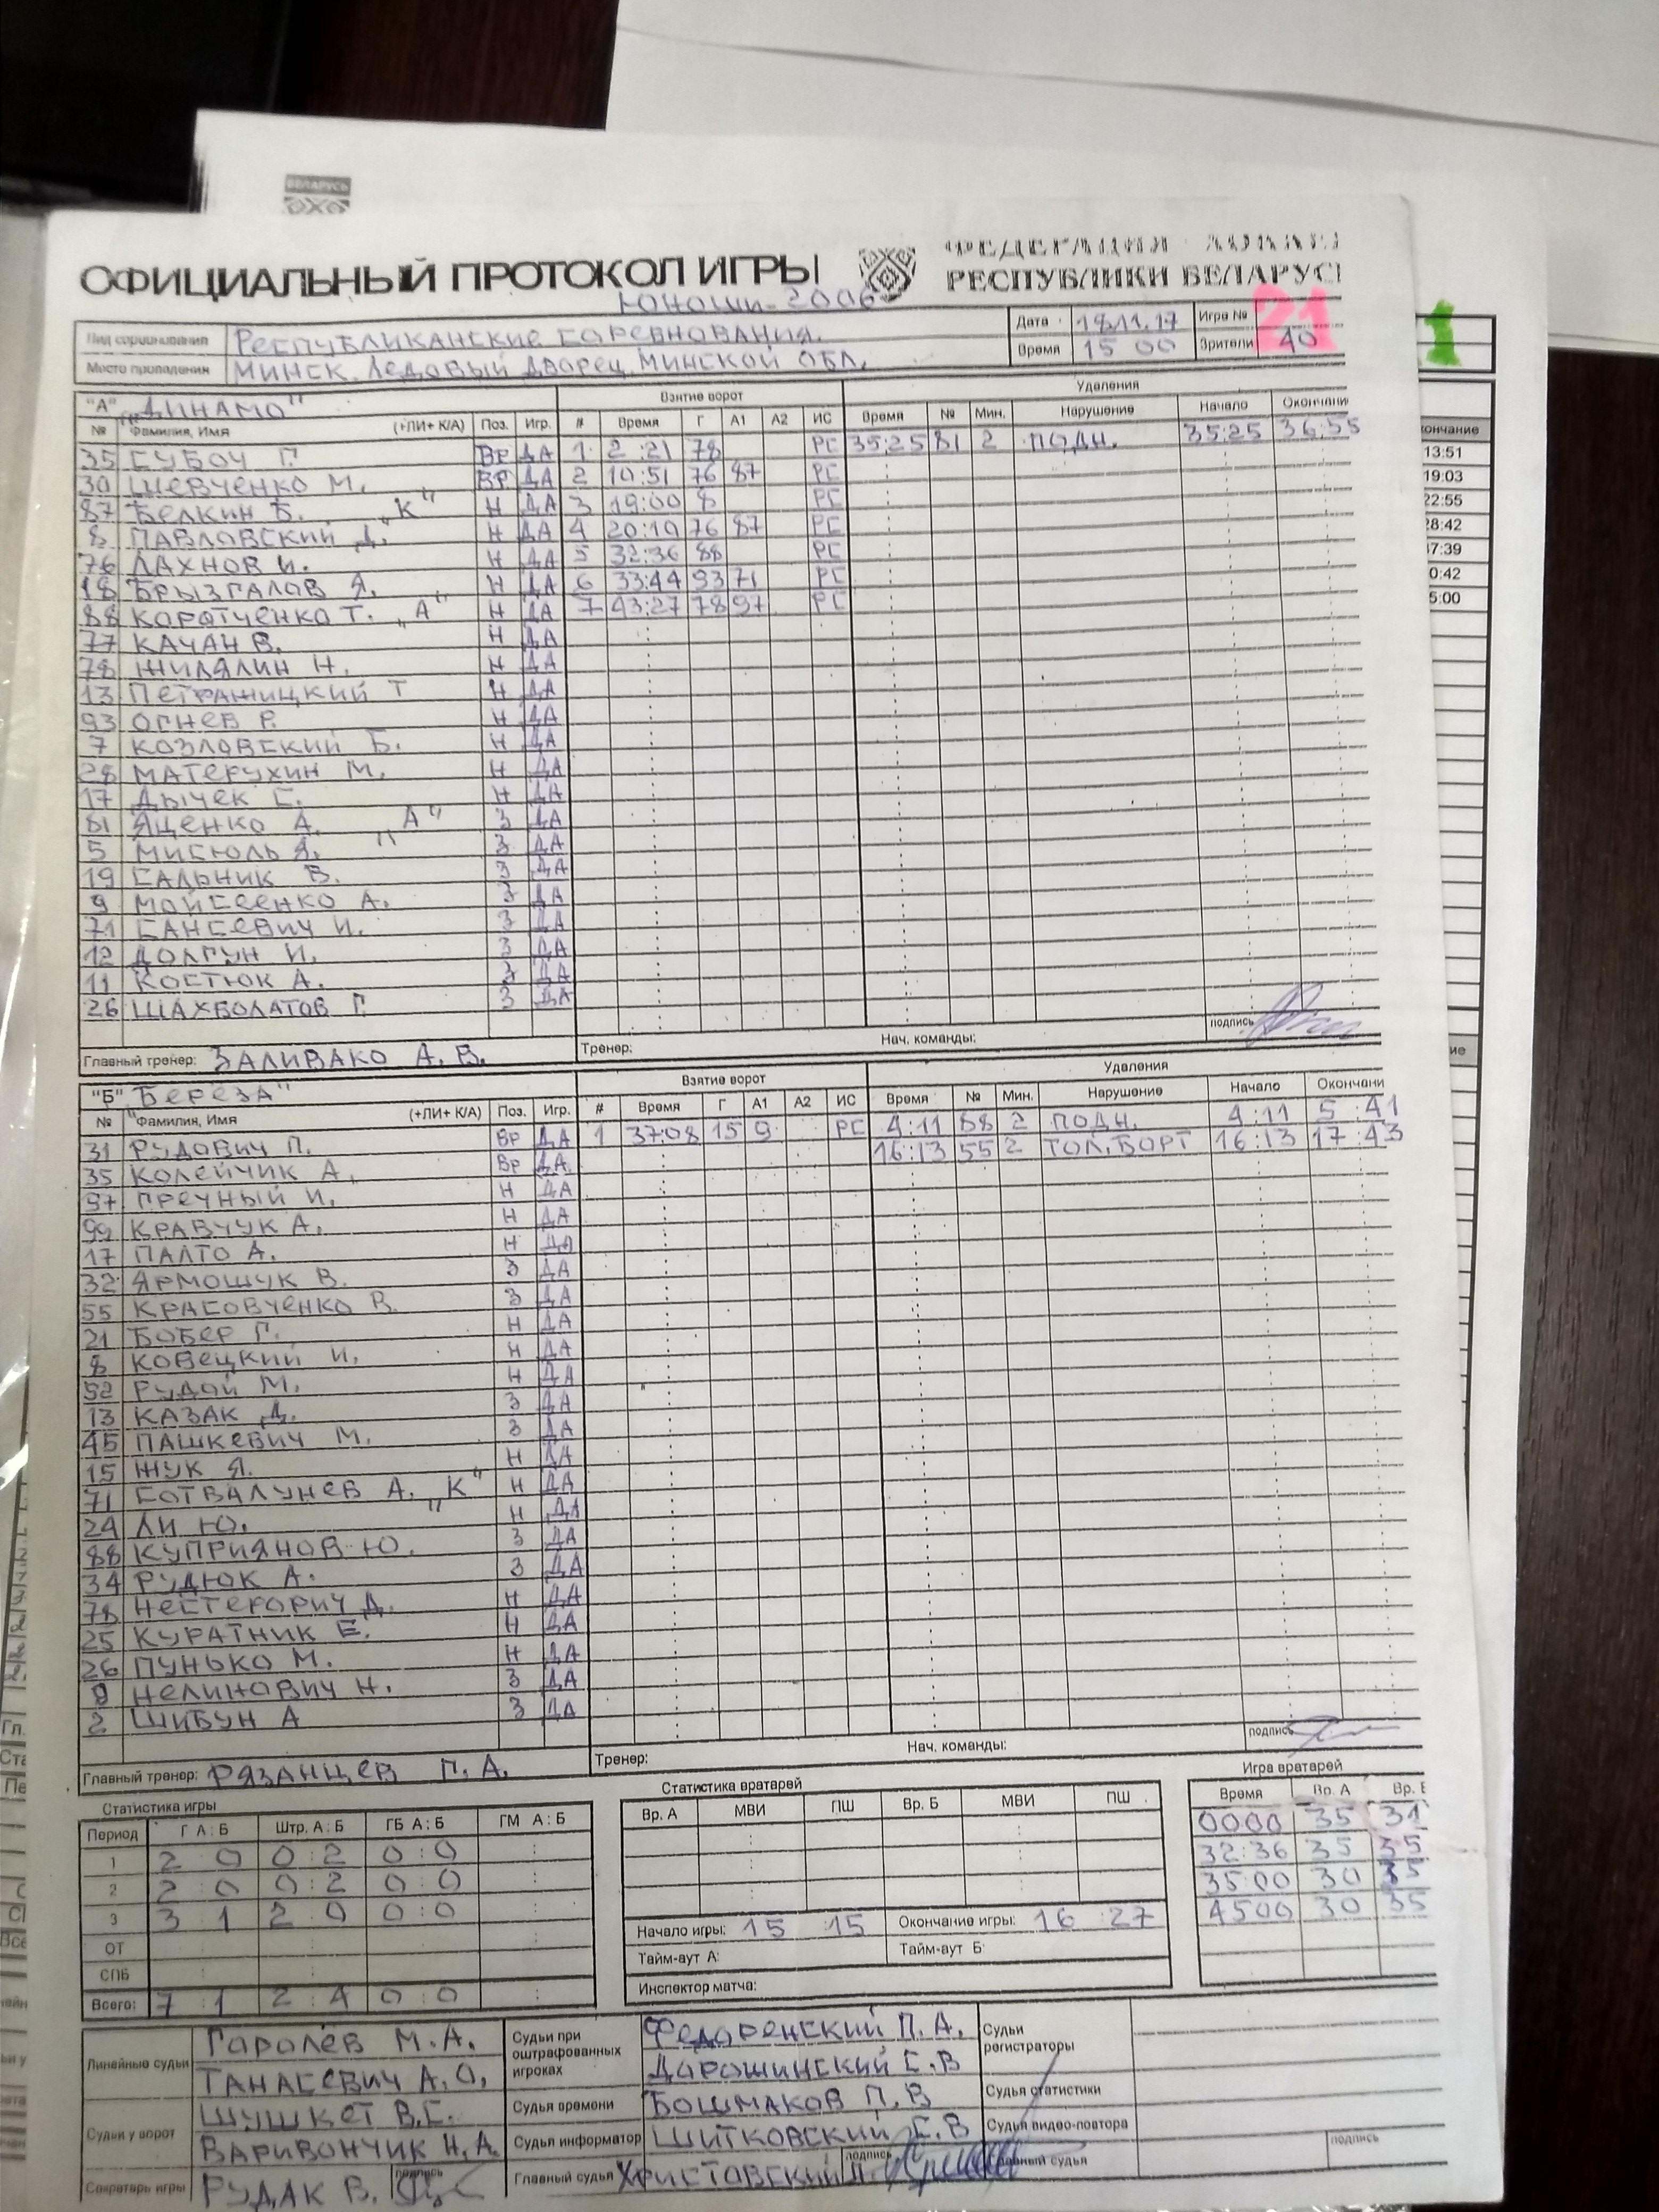 БЕЛАРУСЬ
ОФИЦИАЛЬНЫЙ ПРОТОКОЛ ИГРЫ
РЕСПУБЛИКИ БЕЛАРУСЬ
Юноши-2006
Вид соревнования РЕСПУБЛИКАНСКИЕ СОРЕВНОВАНИЯ. Дата 18.11.17 Игра № 21
Место проведения МИНСК. Ледовый Дворец. МИНСКОЙ ОБЛ. Время 15 00 Зрители 40
1
"А" "ДИНАМО" Взятие ворот Удаления
№ Фамилия, Имя (+ЛИ+ К/А) Поз. Игр. # Время Г А1 А2 ИС Время № Мин. Нарушение Начало Окончани
35 СУБОЧ Г. ВР ДА 1 2:21 78 РС 35:25 81 2 ПОДН. 35:25 36:55
30 ШЕВЧЕНКО М. ВР ДА 2 10:51 76 87 РС
87 БЕЛКИН Б. "К" Н ДА 3 19:00 8 РС
8 ПАВЛОВСКИЙ Д. Н ДА 4 20:19 76 87 РС
76 ЛАХНОВ И. Н ДА 5 32:36 88 РС
18 БРЫЗГАЛОВ Я. Н ДА 6 33:44 93 71 РС
88 КОРОТЧЕНКО Т. "А" Н ДА 7 43:27 78 97 РС
77 КАЧАН В. Н ДА
78 ЖИЛЯЛИН Н. Н ДА
13 ПЕТРАЖИЦКИЙ Т Н ДА
93 ОГНЕВ Р. Н ДА
7 КОЗЛОВСКИЙ Б. Н ДА
28 МАТЕРУХИН М. Н ДА
17 ДЫЧЕК С. Н ДА
81 ЯЦЕНКО А. "А" З ДА
5 МИСЮЛЬ Я. З ДА
19 САЛЬНИК В. З ДА
9 МОЙСЕЕНКО А. З ДА
71 ГАНСЕВИЧ И. З ДА
12 ДОЛГУН И. З ДА
11 КОСТЮК А. З ДА
26 ШАХБОЛАТОВ Г. З ДА
подпись
Главный тренер: ЗАЛИВАКО А. В. Тренер: Нач. команды:
"Б" "Береза" Взятие ворот Удаления
№ Фамилия, Имя (+ЛИ+ К/А) Поз. Игр. # Время Г А1 А2 ИС Время № Мин. Нарушение Начало Окончани
31 РУДОВИЧ П. Вр ДА 1 37:08 15 9 РС 4:11 88 2 ПОДН. 4:11 5:41
35 КОЛЕЙЧИК А. Вр ДА 16:13 55 2 ТОЛ.БОРТ 16:13 17:43
97 ПРЕЧНЫЙ И. Н ДА
99 КРАВЧУК А. Н ДА
17 ПАЛТО А. Н ДА
32 ЯРМОШУК В. З ДА
55 КРАСОВЧЕНКО В. З ДА
21 БОБЕР Г. Н ДА
8 КОВЕЦКИЙ И. Н ДА
52 РУДОЙ М. Н ДА
13 КАЗАК Д. З ДА
45 ПАШКЕВИЧ М. З ДА
15 ЖУК Я. Н ДА
71 ГОТВАЛУНЕВ А. "К" Н ДА
24 ЛИ Ю. Н ДА
88 КУПРИЯНОВ Ю. З ДА
34 РУДЮК А. З ДА
78 НЕСТЕРОВИЧ Д. Н ДА
25 КУРАТНИК Е. Н ДА
26 ПУНЬКО М. Н ДА
9 НЕЛИНОВИЧ Н. З ДА
2 ШИБУН А З ДА
подпись
Главный тренер: РЯЗАНЦЕВ П. А. Тренер: Нач. команды:
Статистика игры Статистика вратарей Игра вратарей
Период Г А : Б Штр. А : Б ГБ А : Б ГМ А : Б Вр. А МВИ ПШ Вр. Б МВИ ПШ Время Вр. А Вр. Б
1 2 0 0:2 0:0 0000 35 31
2 2 0 0:2 0:0 32:36 35 35
3 3 1 2 0 0:0 35:00 30 35
4500 30 35
Начало игры: 15 15 Окончание игры: 16:27
ОТ Тайм-аут А: Тайм-аут Б
СПБ
Инспектор матча:
Всего: 7 1 2:4 0:0
Линейные судьи Горолёв М.А. Судьи при оштрафованных игроках Федоренский П. А. Судьи регистраторы
ТАНАСЕВИЧ А.О. Дорошинский С.В
Судьи у ворот ШУШКЕТ В.С. Судья времени БОШМАКОВ П. В Судья статистики
ВАРИВОНЧИК Н.А. Судья информатор ШИТКОВСКИЙ С.В Судья видео-повтора
Секретарь игры РУДАК В. подпись Главный судья ХРИСТОВСКИЙ Л. подпись Главный судья подпись
ончание
13:51
19:03
22:55
28:42
37:39
0:42
5:00